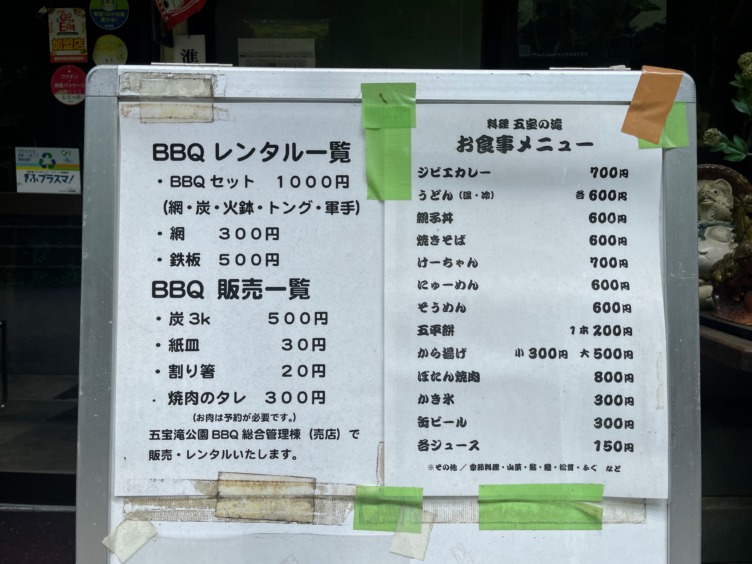 加盟店
ぎふプラスマ!
BBQ レンタル一覧
・BBQセット 1000円
(網・炭・火鉢・トング・軍手)
・網 300円
・鉄板 500円
BBQ 販売一覧
・炭3k 500円
・紙皿 30円
・割り箸 20円
・焼肉のタレ 300円
(お肉は予約が必要です。)
五宝滝公園BBQ総合管理棟(売店)で
販売・レンタルいたします。
料理 五宝の滝
お食事メニュー
ジビエカレー 700円
うどん(温・冷) 各600円
親子丼 600円
焼きそば 600円
けーちゃん 700円
にゅーめん 600円
そうめん 600円
五平餅 1本200円
から揚げ 小300円 大500円
ぼたん焼肉 800円
かき氷 300円
缶ビール 300円
各ジュース 150円
※その他 / 季節料理・山菜・鮎・鯉・松茸・ふぐ など